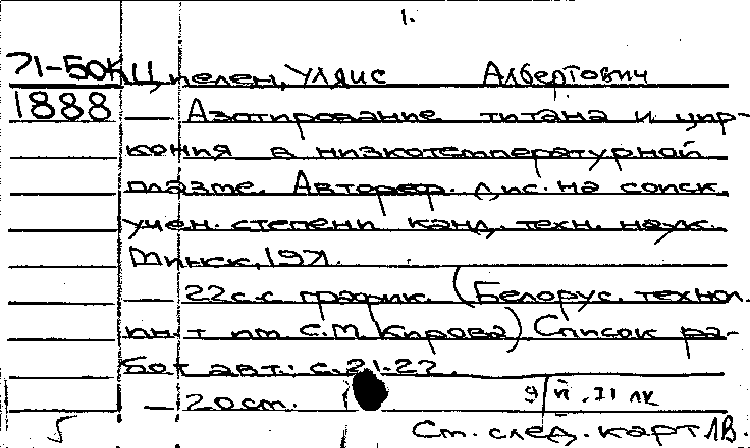 1.
71-БОК Циелен, Улдис Албертович
1888 Азотирование титана и цир-
кония в низкотемпературной
плазме. Автореф. дис. на соиск.
учен. степени канд. техн. наук.
Минск, 1971.
22 с. с график. (Белорус. технол.
ин-т им. С.М. Кирова) Список ра-
бот авт.: с. 21-22.
20 см.
Ст. след. карт ЛВ.